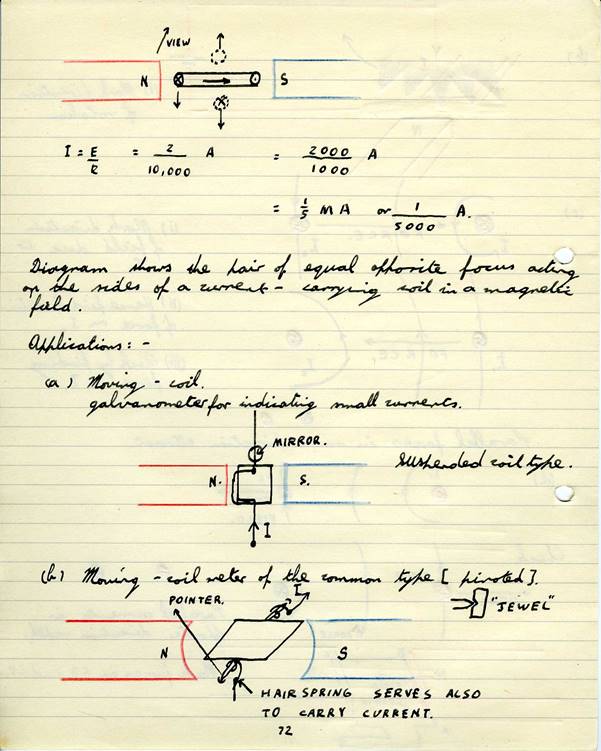 VIEW
N S
I = E/R = 2/10,000 A = 2000/1000 A
= 1/5 MA or 1/5000 A.
Diagram shows the pair of equal opposite focus acting
on the sides of a current - carrying coil in a magnetic
field.
Applications: -
(a) Moving - coil.
galvanometer for indicating small currents.
MIRROR.
suspended coil type.
N. S.
I
(b) Moving - coil meter of the common type [ pivoted ].
POINTER. I "JEWEL"
N S
HAIRSPRING SERVES ALSO
TO CARRY CURRENT.
72